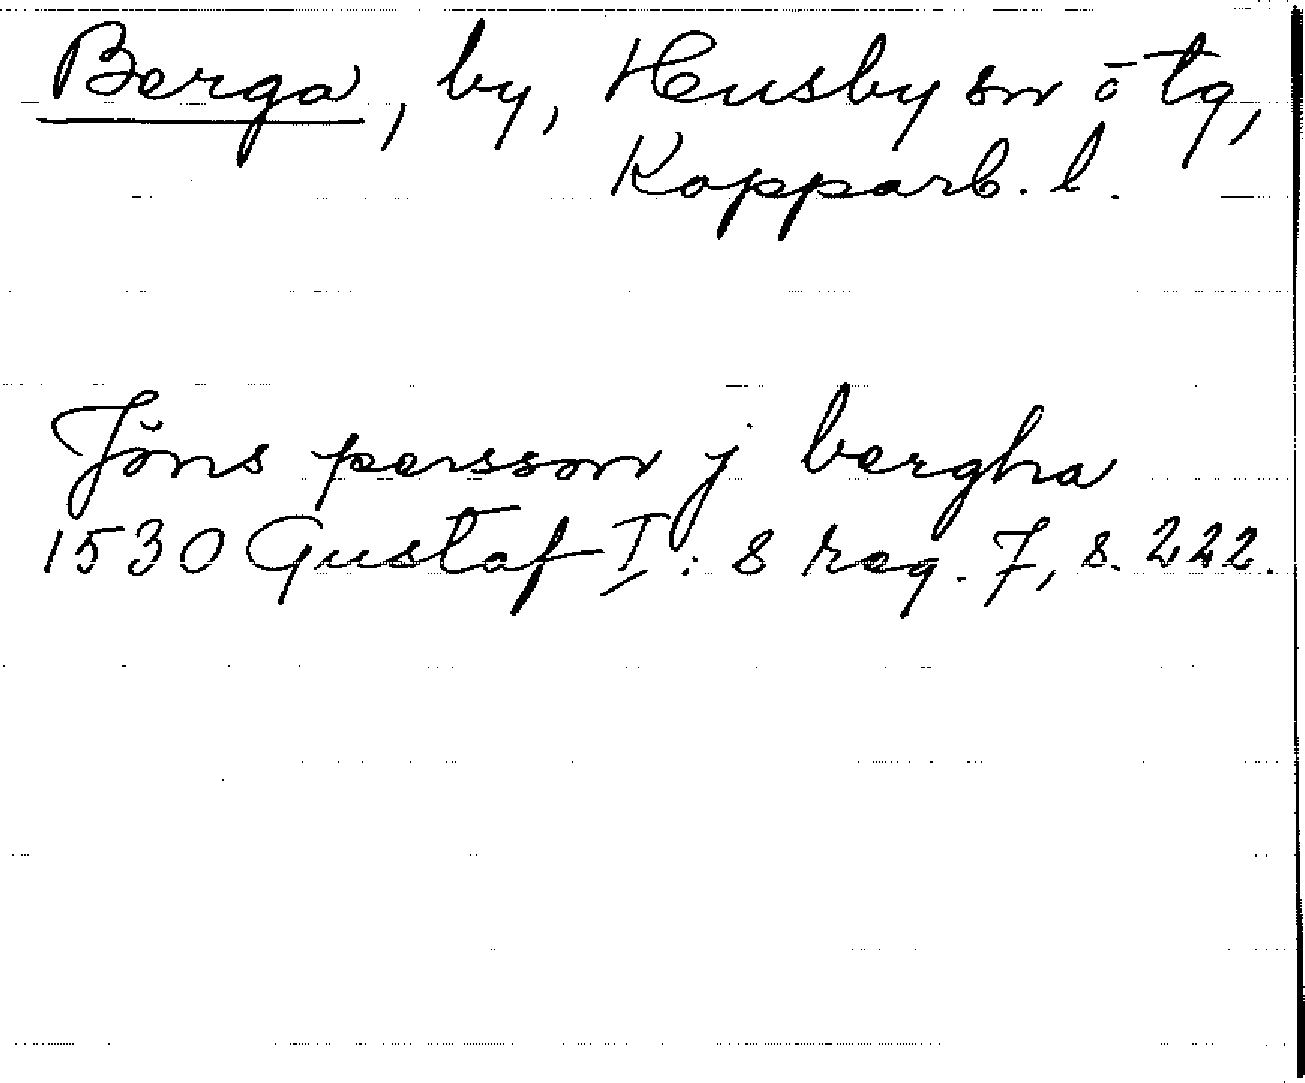 Berga, by, Husby sn o tg,
Kopparb. l.
Jöns persson j bergha
1530 Gustaf I:s reg. 7, s. 222.